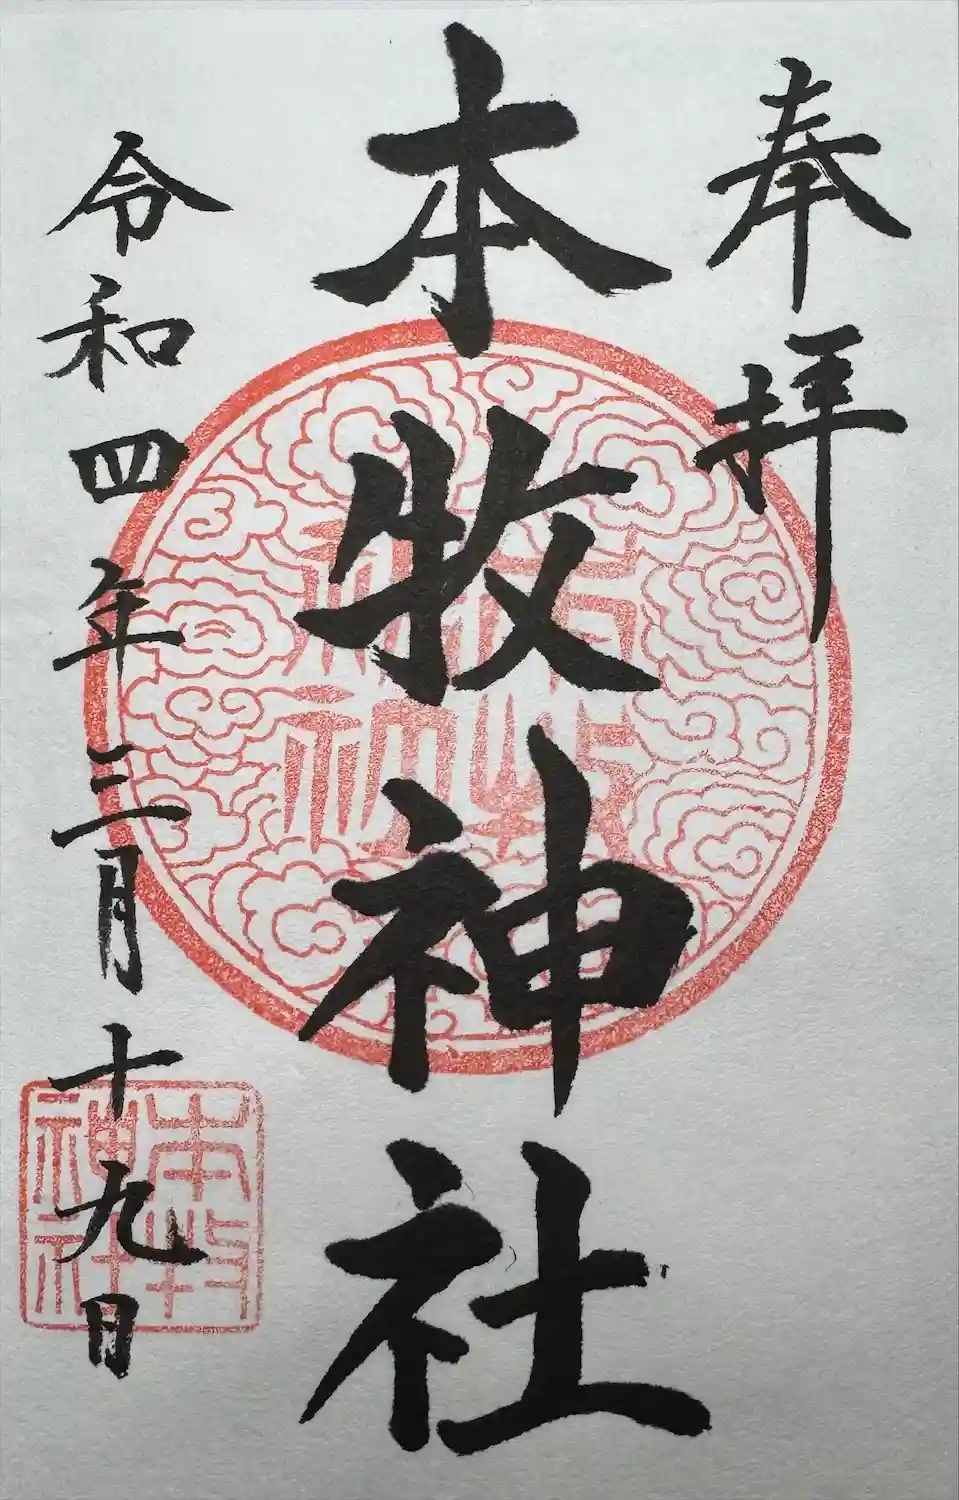 奉拝
本牧神社
令和四年三月十九日
本牧神社